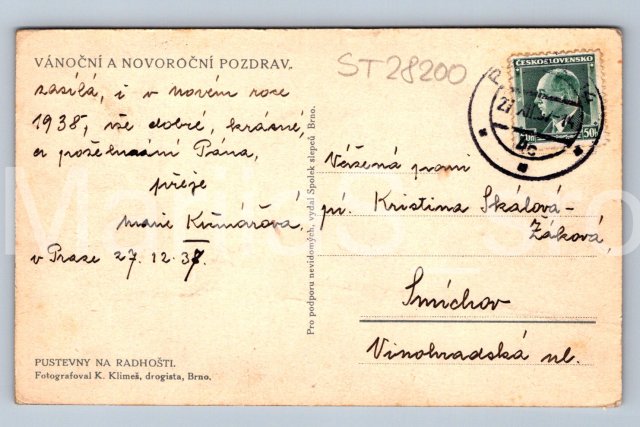 VÁNOČNÍ A NOVOROČNÍ POZDRAV.
zasílá, i v novém roce
1938, vše dobré, krásné,
a požehnání Pána,
přeje
Marie
v Praze 27. 12. 37.
PUSTEVNY NA RADHOŠTI.
Fotografoval K. Klimeš, drogista, Brno.
Pro podporu nevidomých, vydal Spolek slepců Brno.
ST28200
ČESKOSLOVENSKO
50h
Vážená paní
pí. Kristina Skálová-
Žáková
Smíchov
Vinohradská ul.